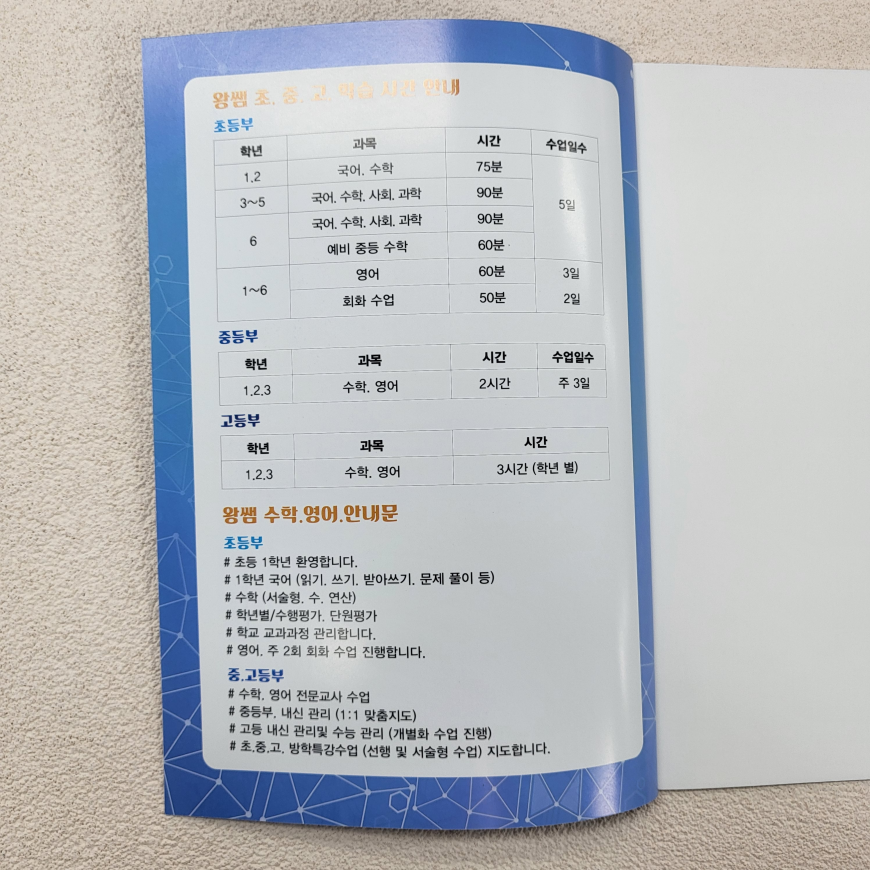 왕쌤 초. 중. 고. 학습 시간 안내
초등부
학년 과목 시간 수업일수
1.2 국어. 수학 75분 5일
3~5 국어. 수학. 사회. 과학 90분
6 국어. 수학. 사회. 과학 90분
예비 중등 수학 60분
1~6 영어 60분 3일
회화 수업 50분 2일
중등부
학년 과목 시간 수업일수
1.2.3 수학. 영어 2시간 주 3일
고등부
학년 과목 시간
1.2.3 수학. 영어 3시간 (학년 별)
왕쌤 수학.영어.안내문
초등부
# 초등 1학년 환영합니다.
# 1학년 국어 (읽기. 쓰기. 받아쓰기. 문제 풀이 등)
# 수학 (서술형. 수. 연산)
# 학년별/수행평가. 단원평가
# 학교 교과과정 관리합니다.
# 영어. 주 2회 회화 수업 진행합니다.
중.고등부
# 수학. 영어 전문교사 수업
# 중등부. 내신 관리 (1:1 맞춤지도)
# 고등 내신 관리및 수능 관리 (개별화 수업 진행)
# 초.중.고. 방학특강수업 (선행 및 서술형 수업) 지도합니다.